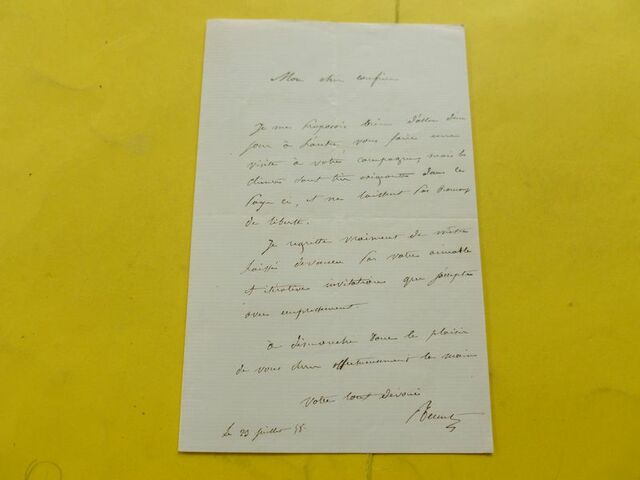 Mon cher confrère
Je me proposais bien d'aller d'un
jour à l'autre, vous faire une
visite à votre campagne, mais les
clients sont très exigeants dans ce
Pays ci, et ne laissent pas beaucoup
de liberté.
Je regrette vraiment de m'être
laissé devancer par votre aimable
et itérative invitation que j'accepte
avec empressement.
à dimanche donc le plaisir
de vous serrer affectueusement la main
Votre tout dévoué
le 23 juillet 55